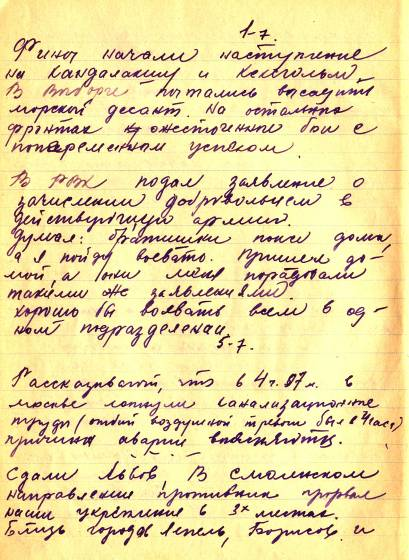 1-7.
Финны начали наступление
на Кандалакшу и Кексгольм
В Выборге пытались высадить
морской десант. На остальных
фронтах ожесточенные бои с
попеременным успехом.
В РВК подал заявление о
зачислении добровольцем в
действующую армию.
Думал: братишки пока дома,
а я пойду воевать. Пришел до-
мой, а они меня порадовали
такими же заявлениями.
Хорошо бы воевать всем в од-
ном подразделении
5-7.
Рассказывают, что в 4ч. 07м. в
Москве лопнули канализационные
трубы (отбой воздушной тревоги был в 4 часа)
причина аварии
Сдали Львов, В Смоленском
направлении противник прорвал
наши укрепления в 3х местах.
Близь города Лепель, Борисов и